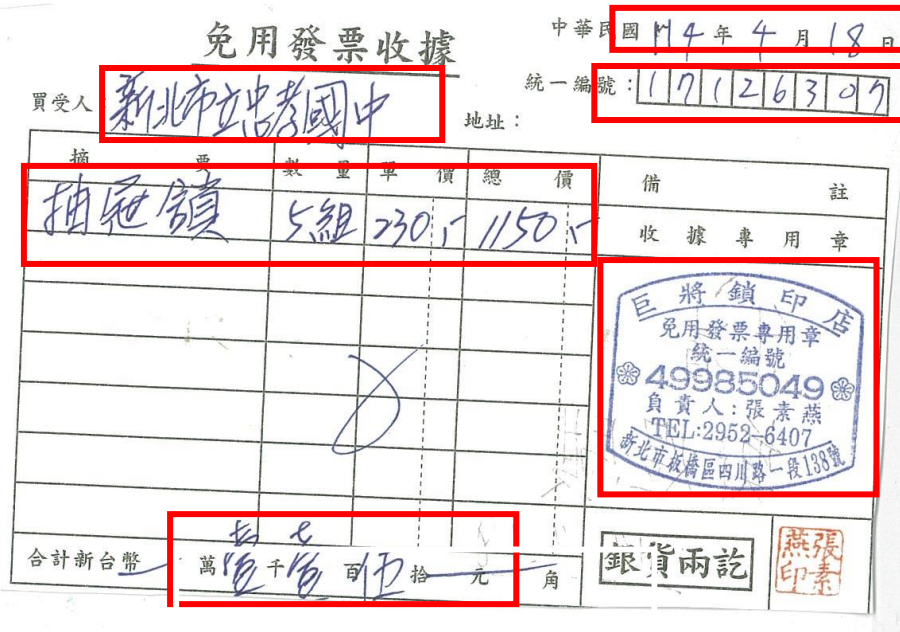 免用發票收據
中華民國114年4月18日
統一編號：17126307
買受人 新北市立忠孝國中
地址：
摘要 數量 單價 總價 備註
抽屜鎖 5組 230,- 1150,-
收據專用章
巨將鎖印店
免用發票專用章
統一編號
49985049
負責人:張素燕
TEL:2952-6407
新北市板橋區四川路一段138號
合計新台幣 萬壹千壹百伍拾 元 角
銀貨兩訖
張素燕印